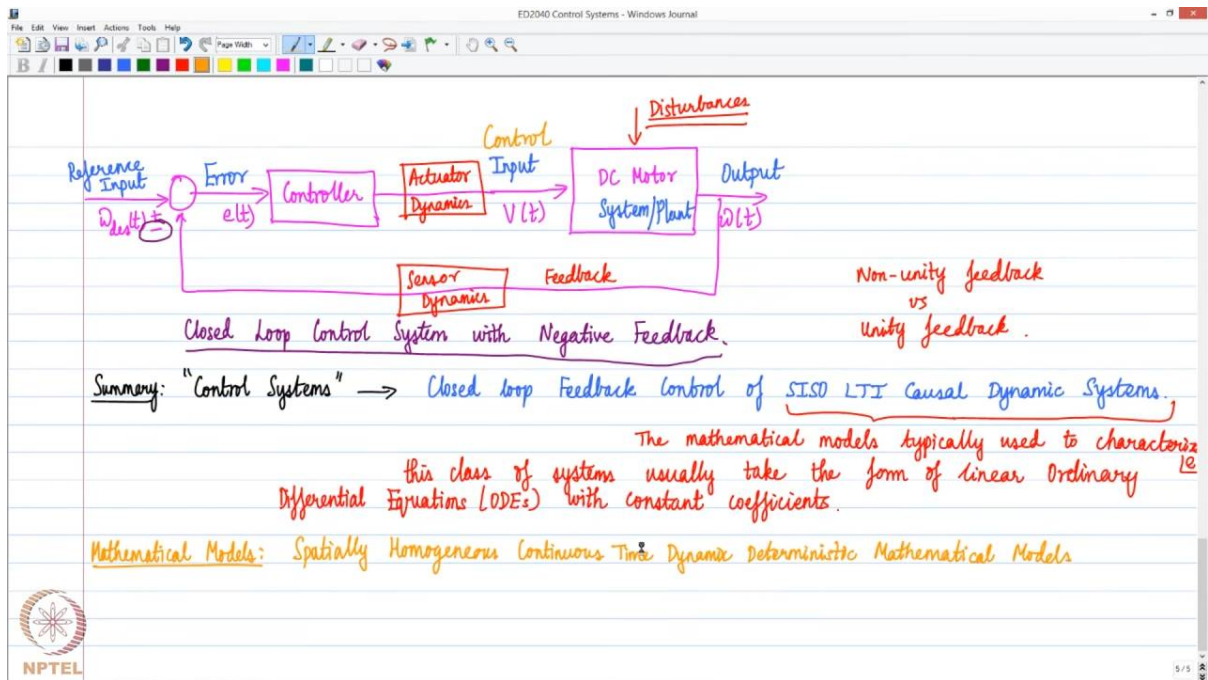 ED2040 Control Systems - Windows Journal
File Edit View Insert Actions Tools Help
Page Width
B I
Disturbances
Control
Reference
Input
Error
Controller
Actuator
Dynamics
Input
DC Motor
System/Plant
Output
ω_des(t) +
−
e(t)
V(t)
ω(t)
Sensor
Dynamics
Feedback
Non-unity feedback
vs
Unity feedback.
Closed Loop Control System with Negative Feedback.
Summary: "Control Systems" → Closed loop Feedback Control of SISO LTI Causal Dynamic Systems.
The mathematical models typically used to characteriz
e
this class of systems usually take the form of linear Ordinary
Differential Equations (ODEs) with constant coefficients.
Mathematical Models: Spatially Homogeneous Continuous Time Dynamic Deterministic Mathematical Models
NPTEL
5/5